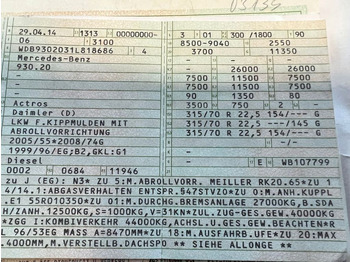 29.04.14 1313 00000000- 3 01 300 /1800 90
06 3100 8500-9040 2550
WDB9302031L818686 4 3700 11350
Mercedes-Benz
930.20 - - 26000 - 26000
7500 11500 7500
7500 11500 7500
90 1350 80
Actros 3500 750 2 -
Daimler (D) 315/70 R 22,5 154/--- G
LKW F.KIPPMULDEN MIT 315/70 R 22,5 ---/145 G
ABROLLVORRICHTUNG 315/70 R 22,5 154/--- G
2005/55*2008/74G
1999/96/EG;B2,GKL:G1
Diesel - E WB107799
0002 0684 11946
zu J (EG): N3* ZU 5:M.ABROLLVORR. MEILLER RK20.65*ZU 1
4/14.1:ABGASVERHALTEN ENTSPR.547STVZO*ZU O:M.ANH.KUPPL
.E1 55R010350*ZU 01:DURCHG.BREMSANLAGE 27000KG,B.SDA
H/ZANH.12500KG,S=1000KG,V=31KN*ZUL.ZUG-GES.GEW.40000KG
*ZGG I:KOMBIVERKEHR 44000KG,ACHSL.U.GES.GEW.BEACHTEN*R
L 96/53EG MASS A=8470MM*ZU 18:M.AUSFAHRB.UFE*ZU 20:MAX
.4000MM,M.VERSTELLB.DACHSPO ** SIEHE ALLONGE **